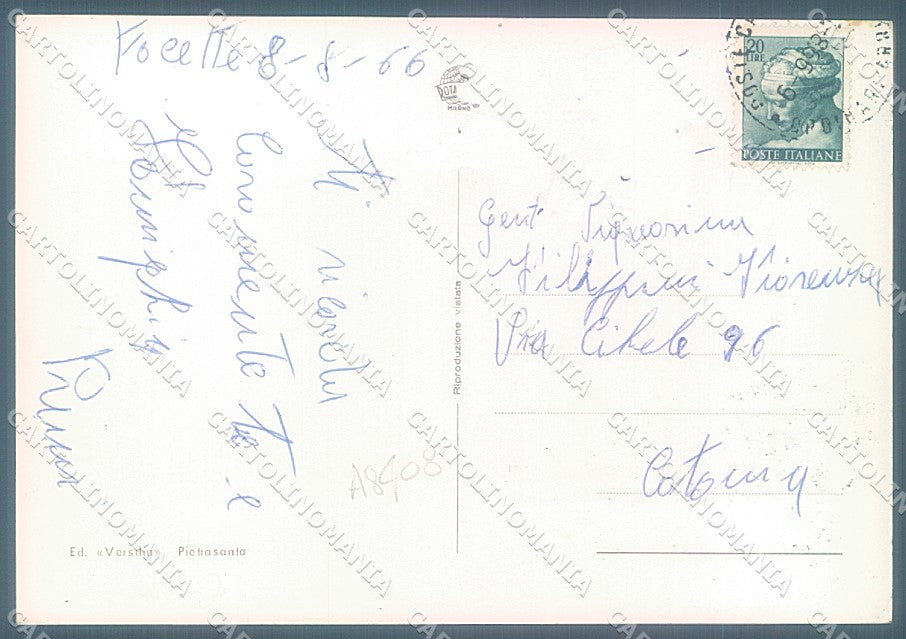 Focette 8-8-66
Ti ricordo
caramente te e
famiglia
20 LIRE
POSTE ITALIANE
MILANO
Gent. Signorina
Filippini Fiorenza
Via Cibele 96
Catania
Riproduzione vietata
A8408
Ed. «Versilia» Pietrasanta
CARTOLINOMANIA